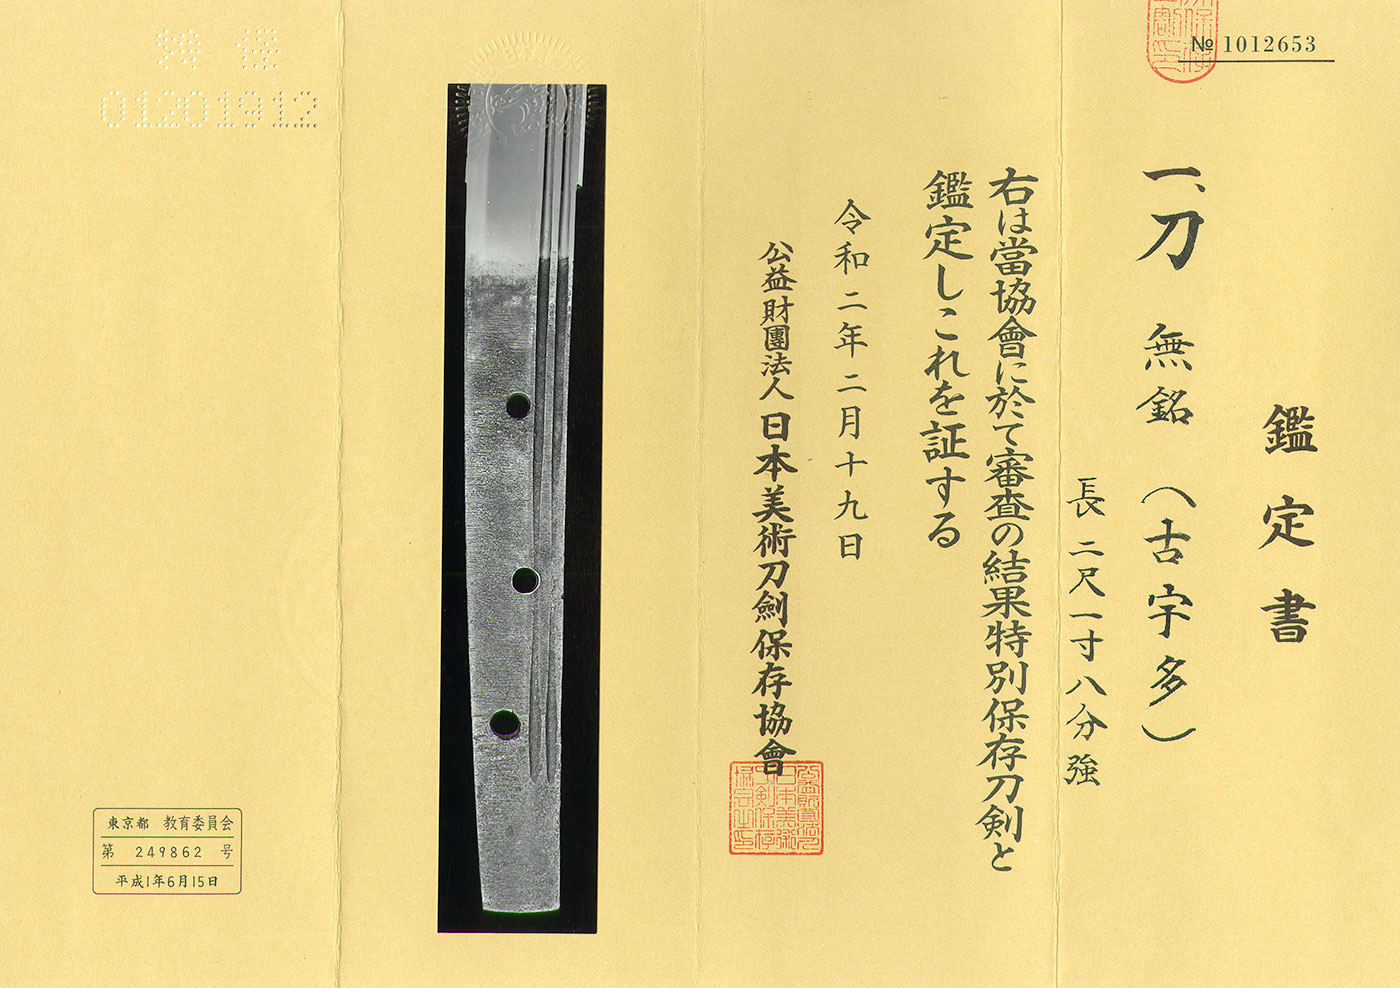 № 1012653
鑑定書
一、刀 無銘(古宇多)
長 二尺一寸八分強
右は當協會に於て審査の結果特別保存刀剣と
鑑定しこれを証する
令和二年二月十九日
公益財團法人日本美術刀劍保存協會
特保
01201912
東京都 教育委員会
第 249862 号
平成1年6月15日